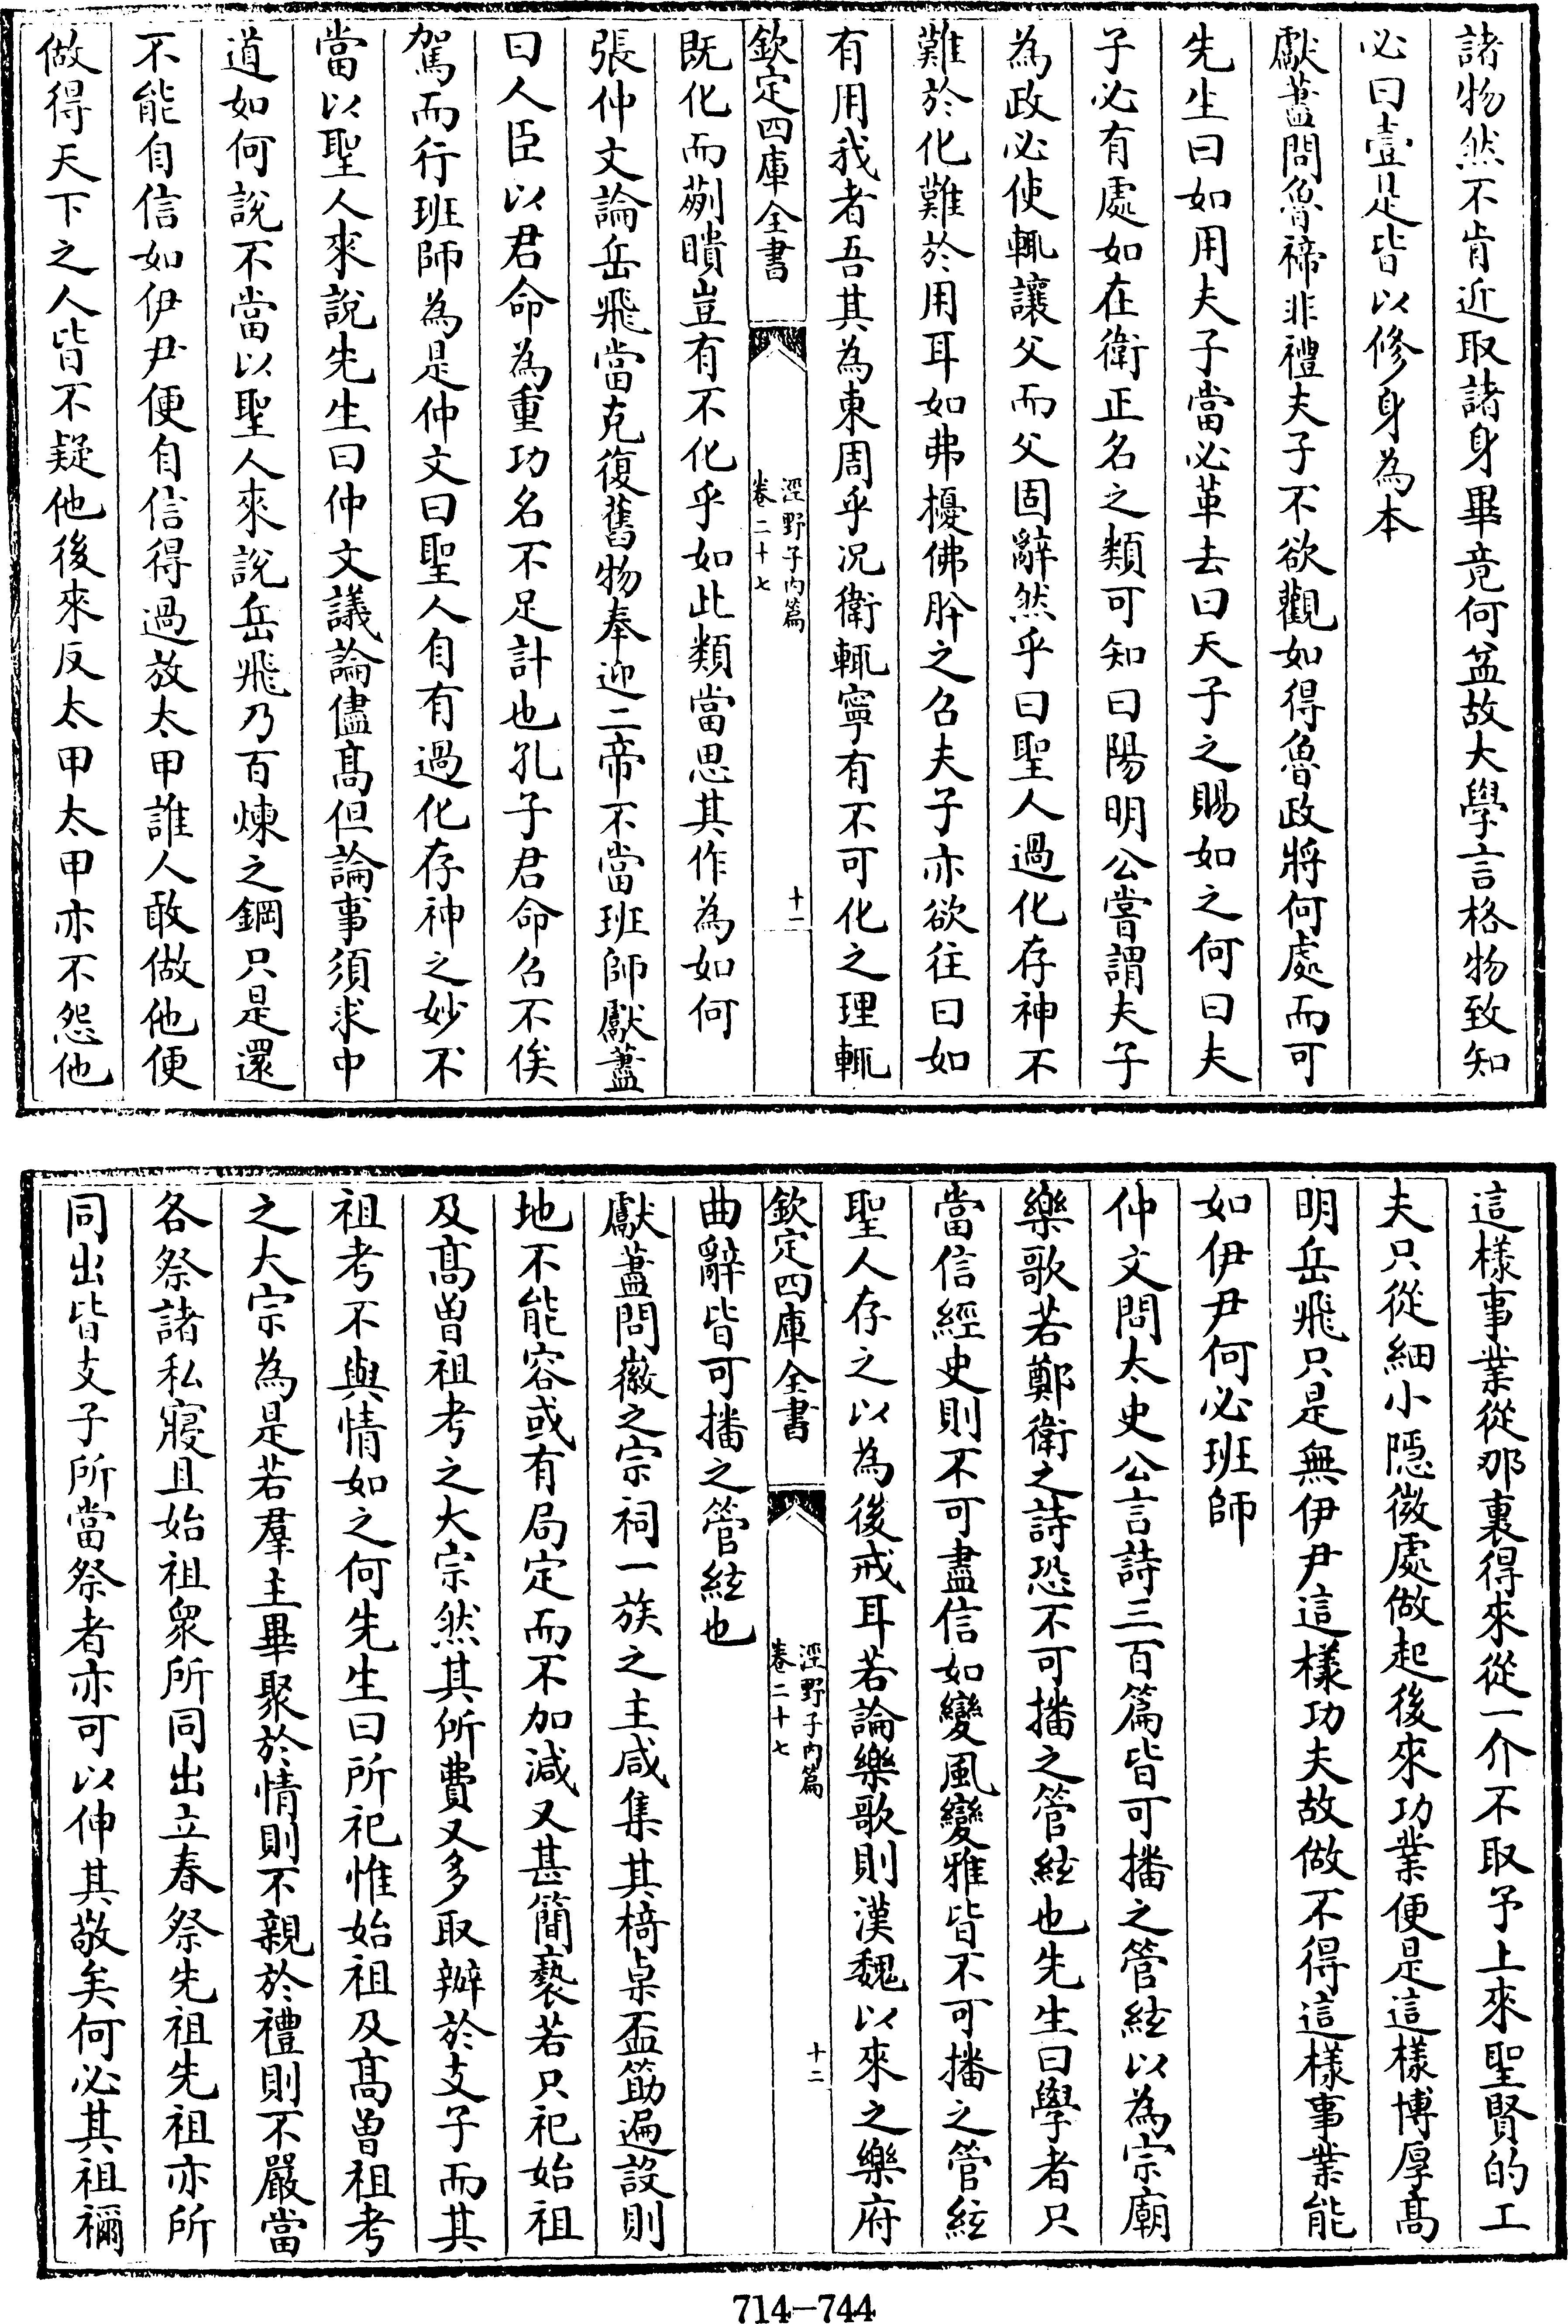 諸物然不肯近取諸身畢竟何益故大學言格物致知
必曰壹是皆以修身為本
獻藎問魯禘非禮夫子不欲觀如得魯政將何處而可
先生曰如用夫子當必革去曰天子之賜如之何曰夫
子必有處如在衛正名之類可知曰陽明公嘗謂夫子
為政必使輒讓父而父固辭然乎曰聖人過化存神不
難於化難於用耳如弗擾佛肸之召夫子亦欲往曰如
有用我者吾其為東周乎况衛輒寧有不可化之理輒
欽定四庫全書
涇野子內篇
卷二十七
十一
既化而蒯瞶豈有不化乎如此類當思其作為如何
張仲文論岳飛當克復舊物奉迎二帝不當班師獻藎
曰人臣以君命為重功名不足計也孔子君命召不俟
駕而行班師為是仲文曰聖人自有過化存神之妙不
當以聖人來說先生曰仲文議論儘髙但論事須求中
道如何說不當以聖人來說岳飛乃百煉之鋼只是還
不能自信如伊尹便自信得過放太甲誰人敢做他便
做得天下之人皆不疑他後來反太甲太甲亦不怨他
這樣事業從那裏得來從一介不取予上來聖賢的工
夫只從細小隱微處做起後來功業便是這樣博厚髙
明岳飛只是無伊尹這樣功夫故做不得這樣事業能
如伊尹何必班師
仲文問太史公言詩三百篇皆可播之管絃以為宗廟
樂歌若鄭衛之詩恐不可播之管絃也先生曰學者只
當信經史則不可盡信如變風變雅皆不可播之管絃
聖人存之以為後戒耳若論樂歌則漢魏以來之樂府
欽定四庫全書
涇野子內篇
卷二十七
十二
曲辭皆可播之管絃也
獻藎問徽之宗祠一族之主咸集其椅桌盃筯遍設則
地不能容或有局定而不加減又甚簡褻若只祀始祖
及髙曽祖考之大宗然其所費又多取辦於支子而其
祖考不與情如之何先生曰所祀惟始祖及髙曽祖考
之大宗為是若羣主畢聚於情則不親於禮則不嚴當
各祭諸私寢且始祖衆所同出立春祭先祖先祖亦所
同出皆支子所當祭者亦可以伸其敬矣何必其祖禰
714-744